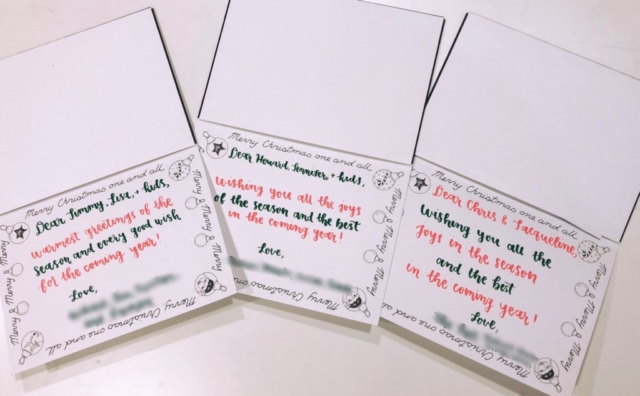 Merry Christmas one and all
Dear Jimmy, Lisa, + kids,
warmest greetings of the
season and every good wish
for the coming year!
Love,
Merry & Merry
Merry & Merry
Merry Christmas one and all
Merry Christmas one and all
Dear Howard, Jennifer, + kids,
Wishing you all the joys
of the season and the best
in the coming year!
Love,
Merry & Merry
Merry & Merry
Merry Christmas one and all
Merry Christmas one and all
Dear Chris & Jacqueline,
Wishing you all the
Joys in the season
and the best
in the coming year!
Love,
Merry & Merry
Merry & Merry
Merry Christmas one and all